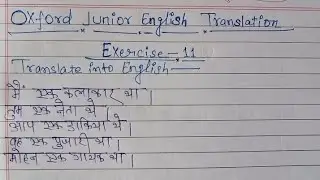 Oxford Junior English Translation
Exercise - 11
Translate into English -
मैं एक कलाकार था।
तुम एक नेता थे।
आप एक डाकिया थे।
वह एक पुजारी था।
मोहन एक गायक था।